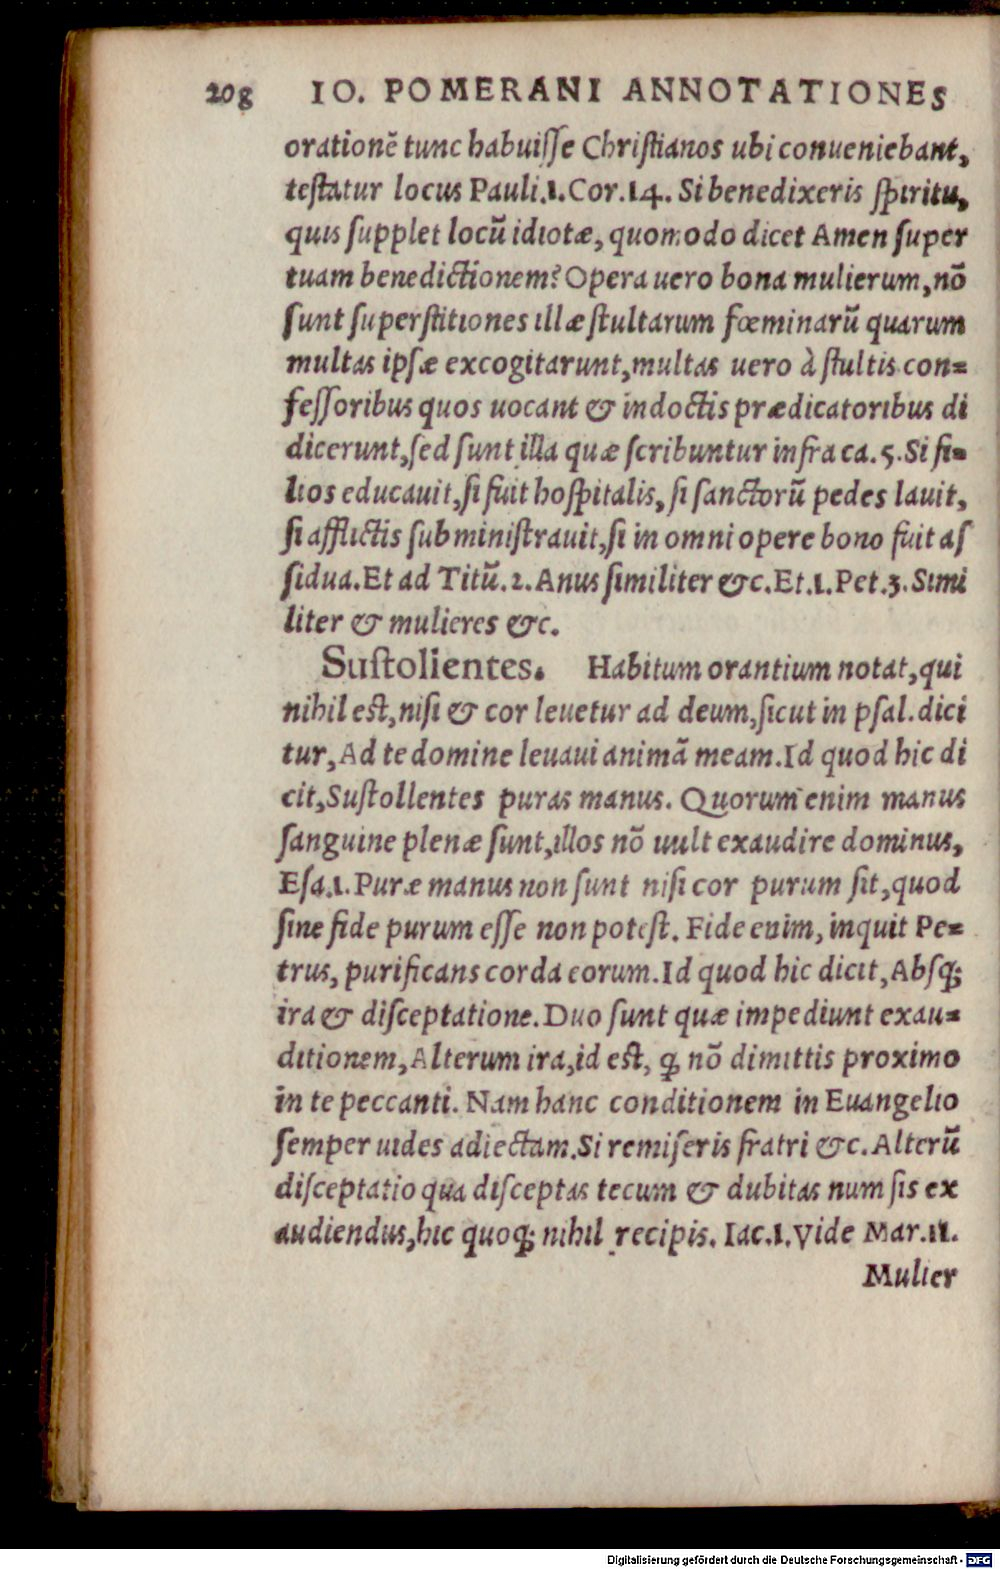 208 IO. POMERANI ANNOTATIONES
orationẽ tunc habuiſſe Chriſtianos ubi conueniebant,
teſtatur locus Pauli.1.Cor.14. Si benedixeris ſpiritu,
quis ſupplet locũ idiotæ, quomodo dicet Amen ſuper
tuam benedictionem? Opera uero bona mulierum, nõ
ſunt ſuperſtitiones illæ ſtultarum fœminarũ quarum
multas ipſæ excogitarunt, multas uero à ſtultis con=
feſſoribus quos uocant & indoctis prædicatoribus di
dicerunt, ſed ſunt illa quæ ſcribuntur infra ca.5. Si fi=
lios educauit, ſi fuit hoſpitalis, ſi ſanctorũ pedes lauit,
ſi afflictis ſubminiſtrauit, ſi in omni opere bono fuit aſ
ſidua. Et ad Titũ.2. Anus ſimiliter &c. Et.1.Pet.3. Simi
liter & mulieres &c.
Suſtollentes. Habitum orantium notat, qui
nihil eſt, niſi & cor leuetur ad deum, ſicut in pſal. dici
tur, Ad te domine leuaui animã meam. Id quod hic di
cit, Suſtollentes puras manus. Quorum enim manus
ſanguine plenæ ſunt, illos nõ uult exaudire dominus,
Eſa.1. Puræ manus non ſunt niſi cor purum ſit, quod
ſine fide purum eſſe non poteſt. Fide enim, inquit Pe=
trus, purificans corda eorum. Id quod hic dicit, Abſq;
ira & diſceptatione. Duo ſunt quæ impediunt exau=
ditionem, Alterum ira, id eſt, ꝙ nõ dimittis proximo
in te peccanti. Nam hanc conditionem in Euangelio
ſemper uides adiectam. Si remiſeris fratri &c. Alterũ
diſceptatio qua diſceptas tecum & dubitas num ſis ex
audiendus, hic quoq; nihil recipis. Iac.1. Vide Mar.11.
Mulier
Digitalisierung gefördert durch die Deutsche Forschungsgemeinschaft - DFG